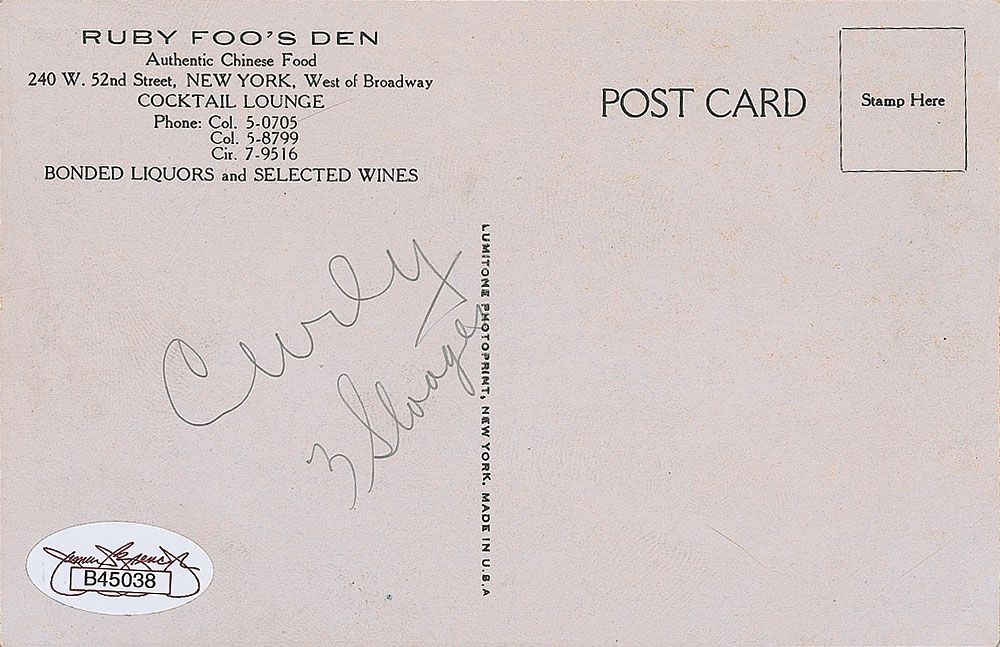 RUBY FOO'S DEN
Authentic Chinese Food
240 W. 52nd Street, NEW YORK, West of Broadway
COCKTAIL LOUNGE
Phone: Col. 5-0705
Col. 5-8799
Cir. 7-9516
BONDED LIQUORS and SELECTED WINES
POST CARD
Stamp Here
Curly
3 Stooges
LUMITONE PHOTOPRINT, NEW YORK. MADE IN U.S.A
James Spence Jr
B45038